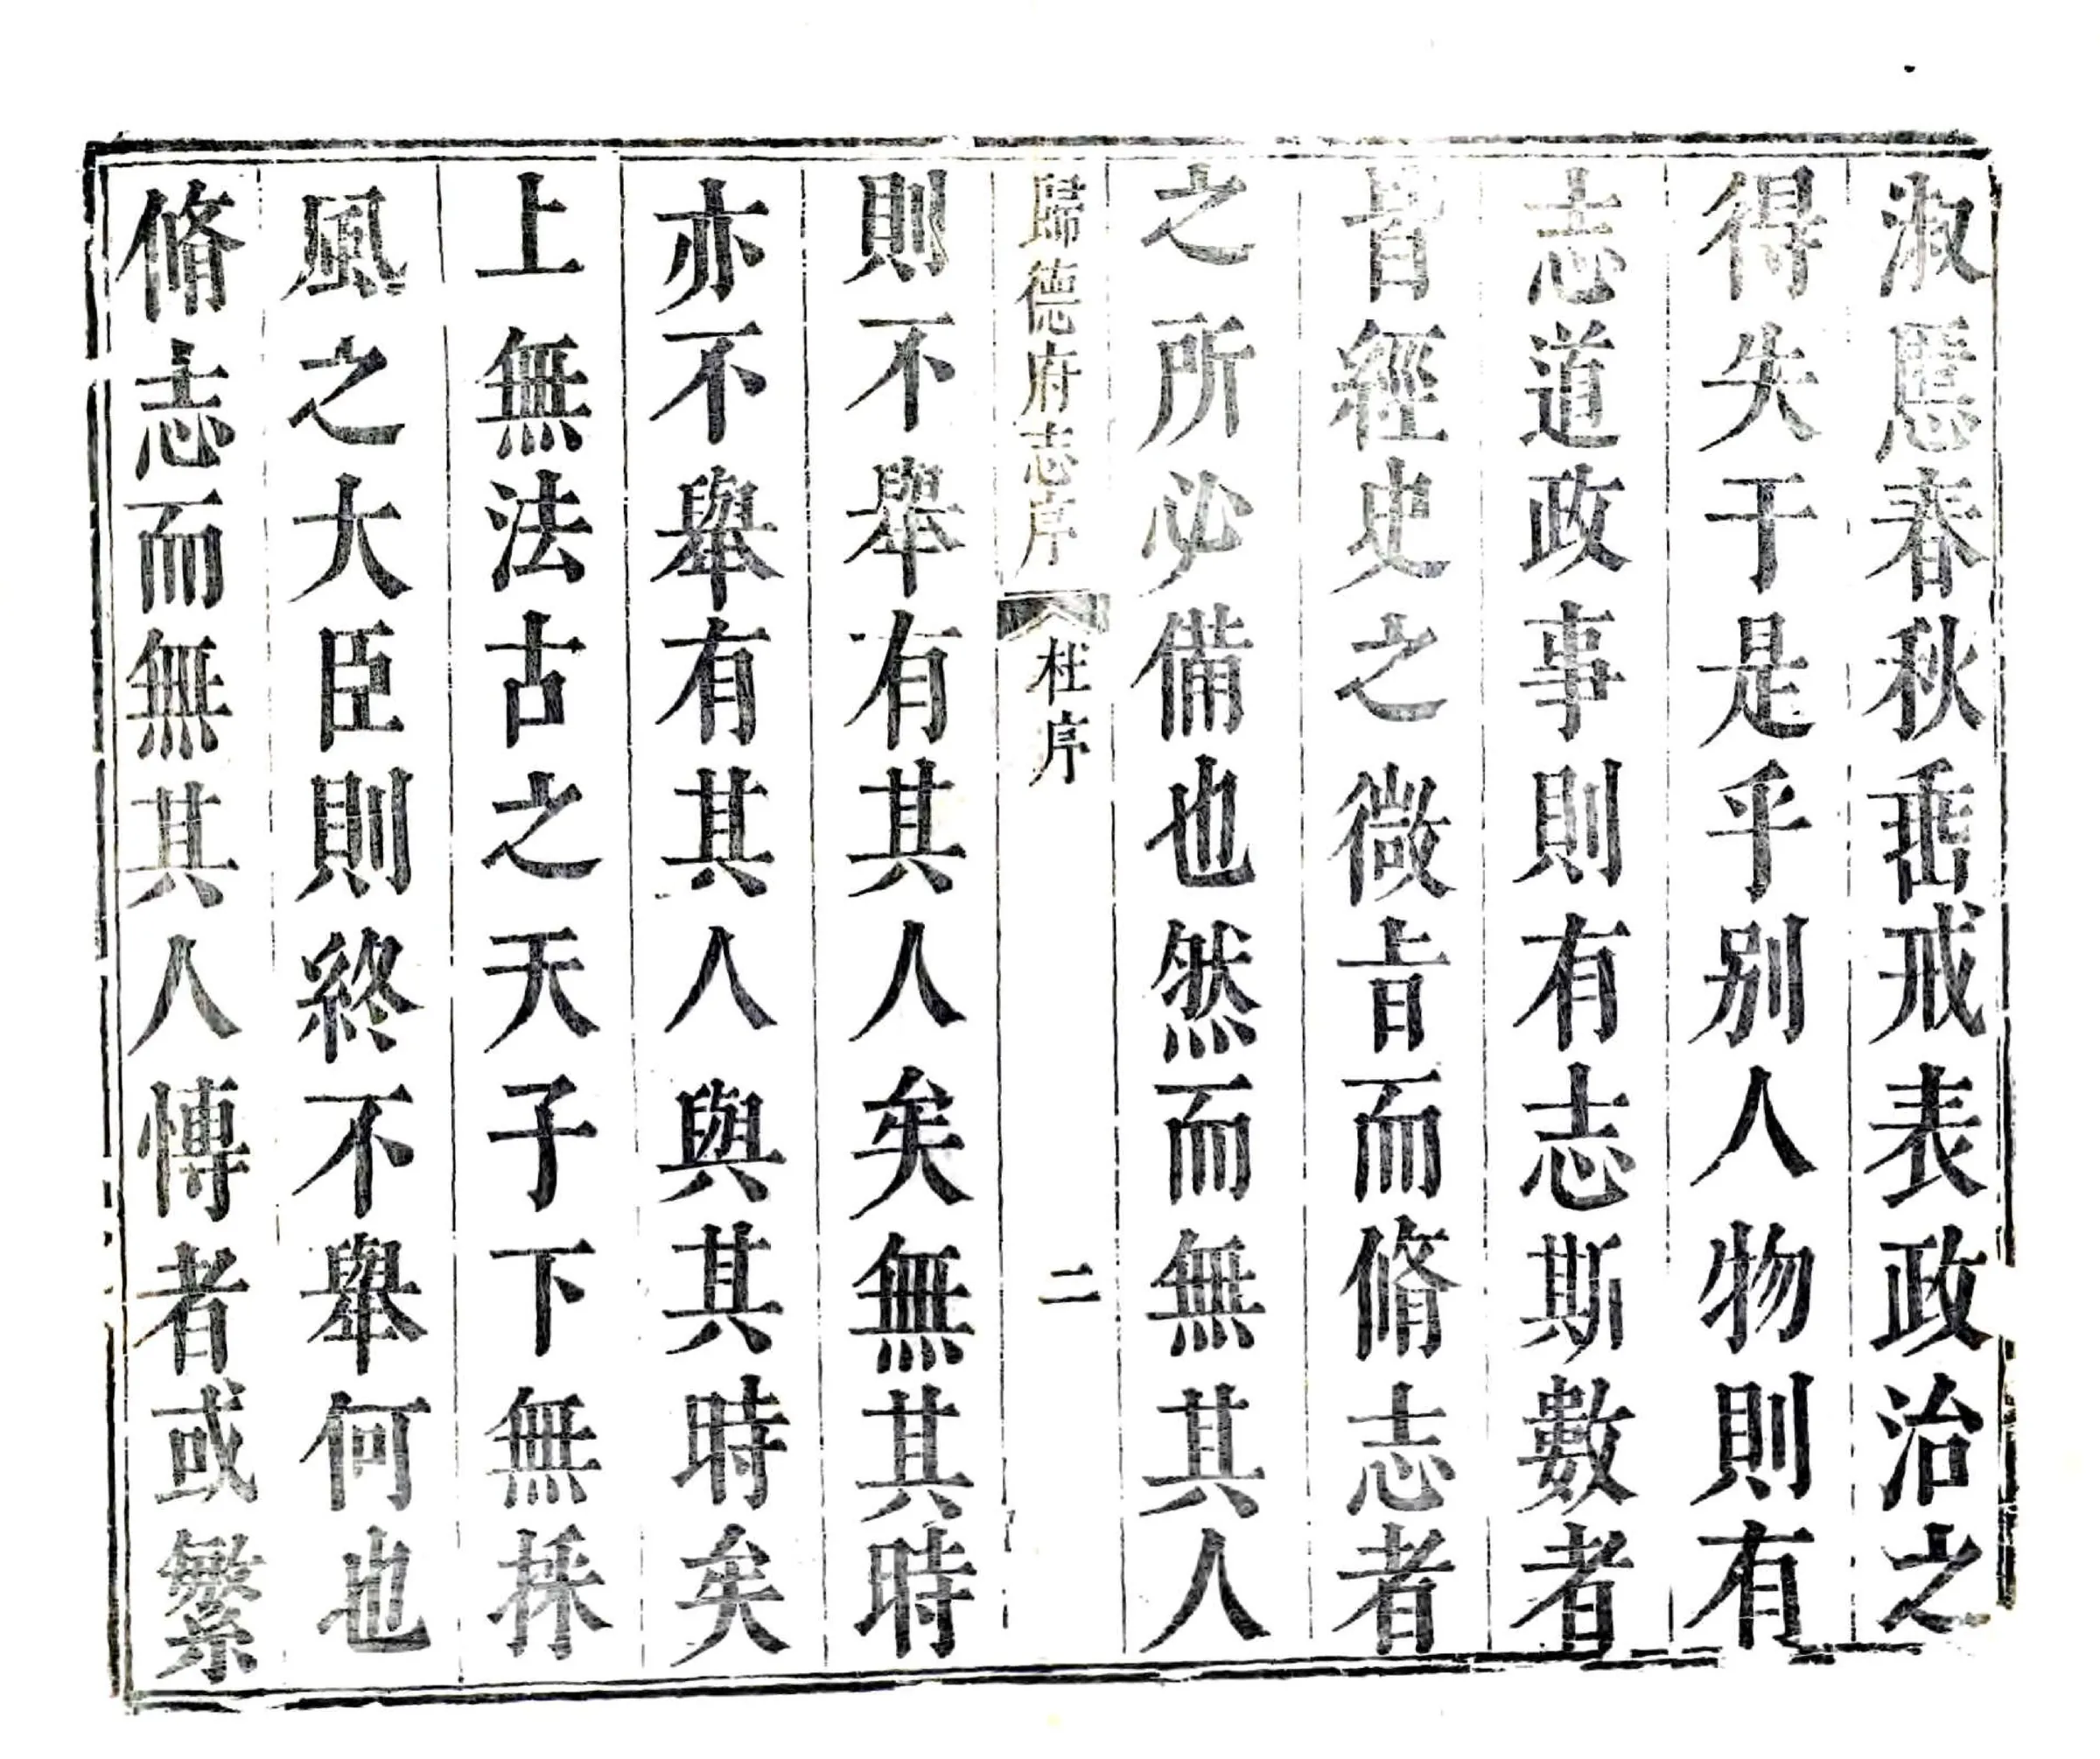 淑慝春秋垂戒表政治之
得失于是乎别人物則有
志道政事則有志斯數者
皆經史之微㫖而脩志者
之所必備也然而無其人
歸德府志序 杜序 二
則不舉有其人矣無其時
亦不舉有其人與其時矣
上無法古之天子下無採
風之大臣則終不舉何也
脩志而無其人愽者或繁